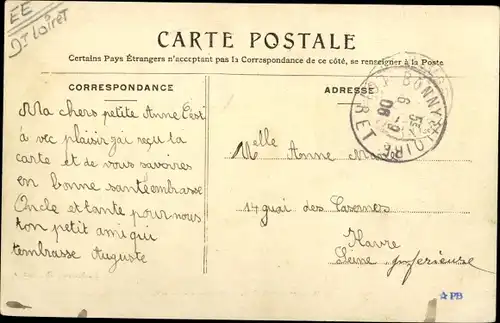 EE
Dt Loiret
CARTE POSTALE
Certains Pays Étrangers n'acceptant pas la Correspondance de ce côté, se renseigner à la Poste
CORRESPONDANCE
ADRESSE
Ma chers petite Anne C'est
à vec plaisir j'ai reçu ta
carte et de vous savoires
en bonne santé embrasse
Oncle et tante pour nous
ton petit ami qui
tembrasse Auguste
BONNY-S-LOIRE
LOIRET
08
Melle Anne
14 quai des Casernes
Havre
Seine Inferieuse
☆ PB